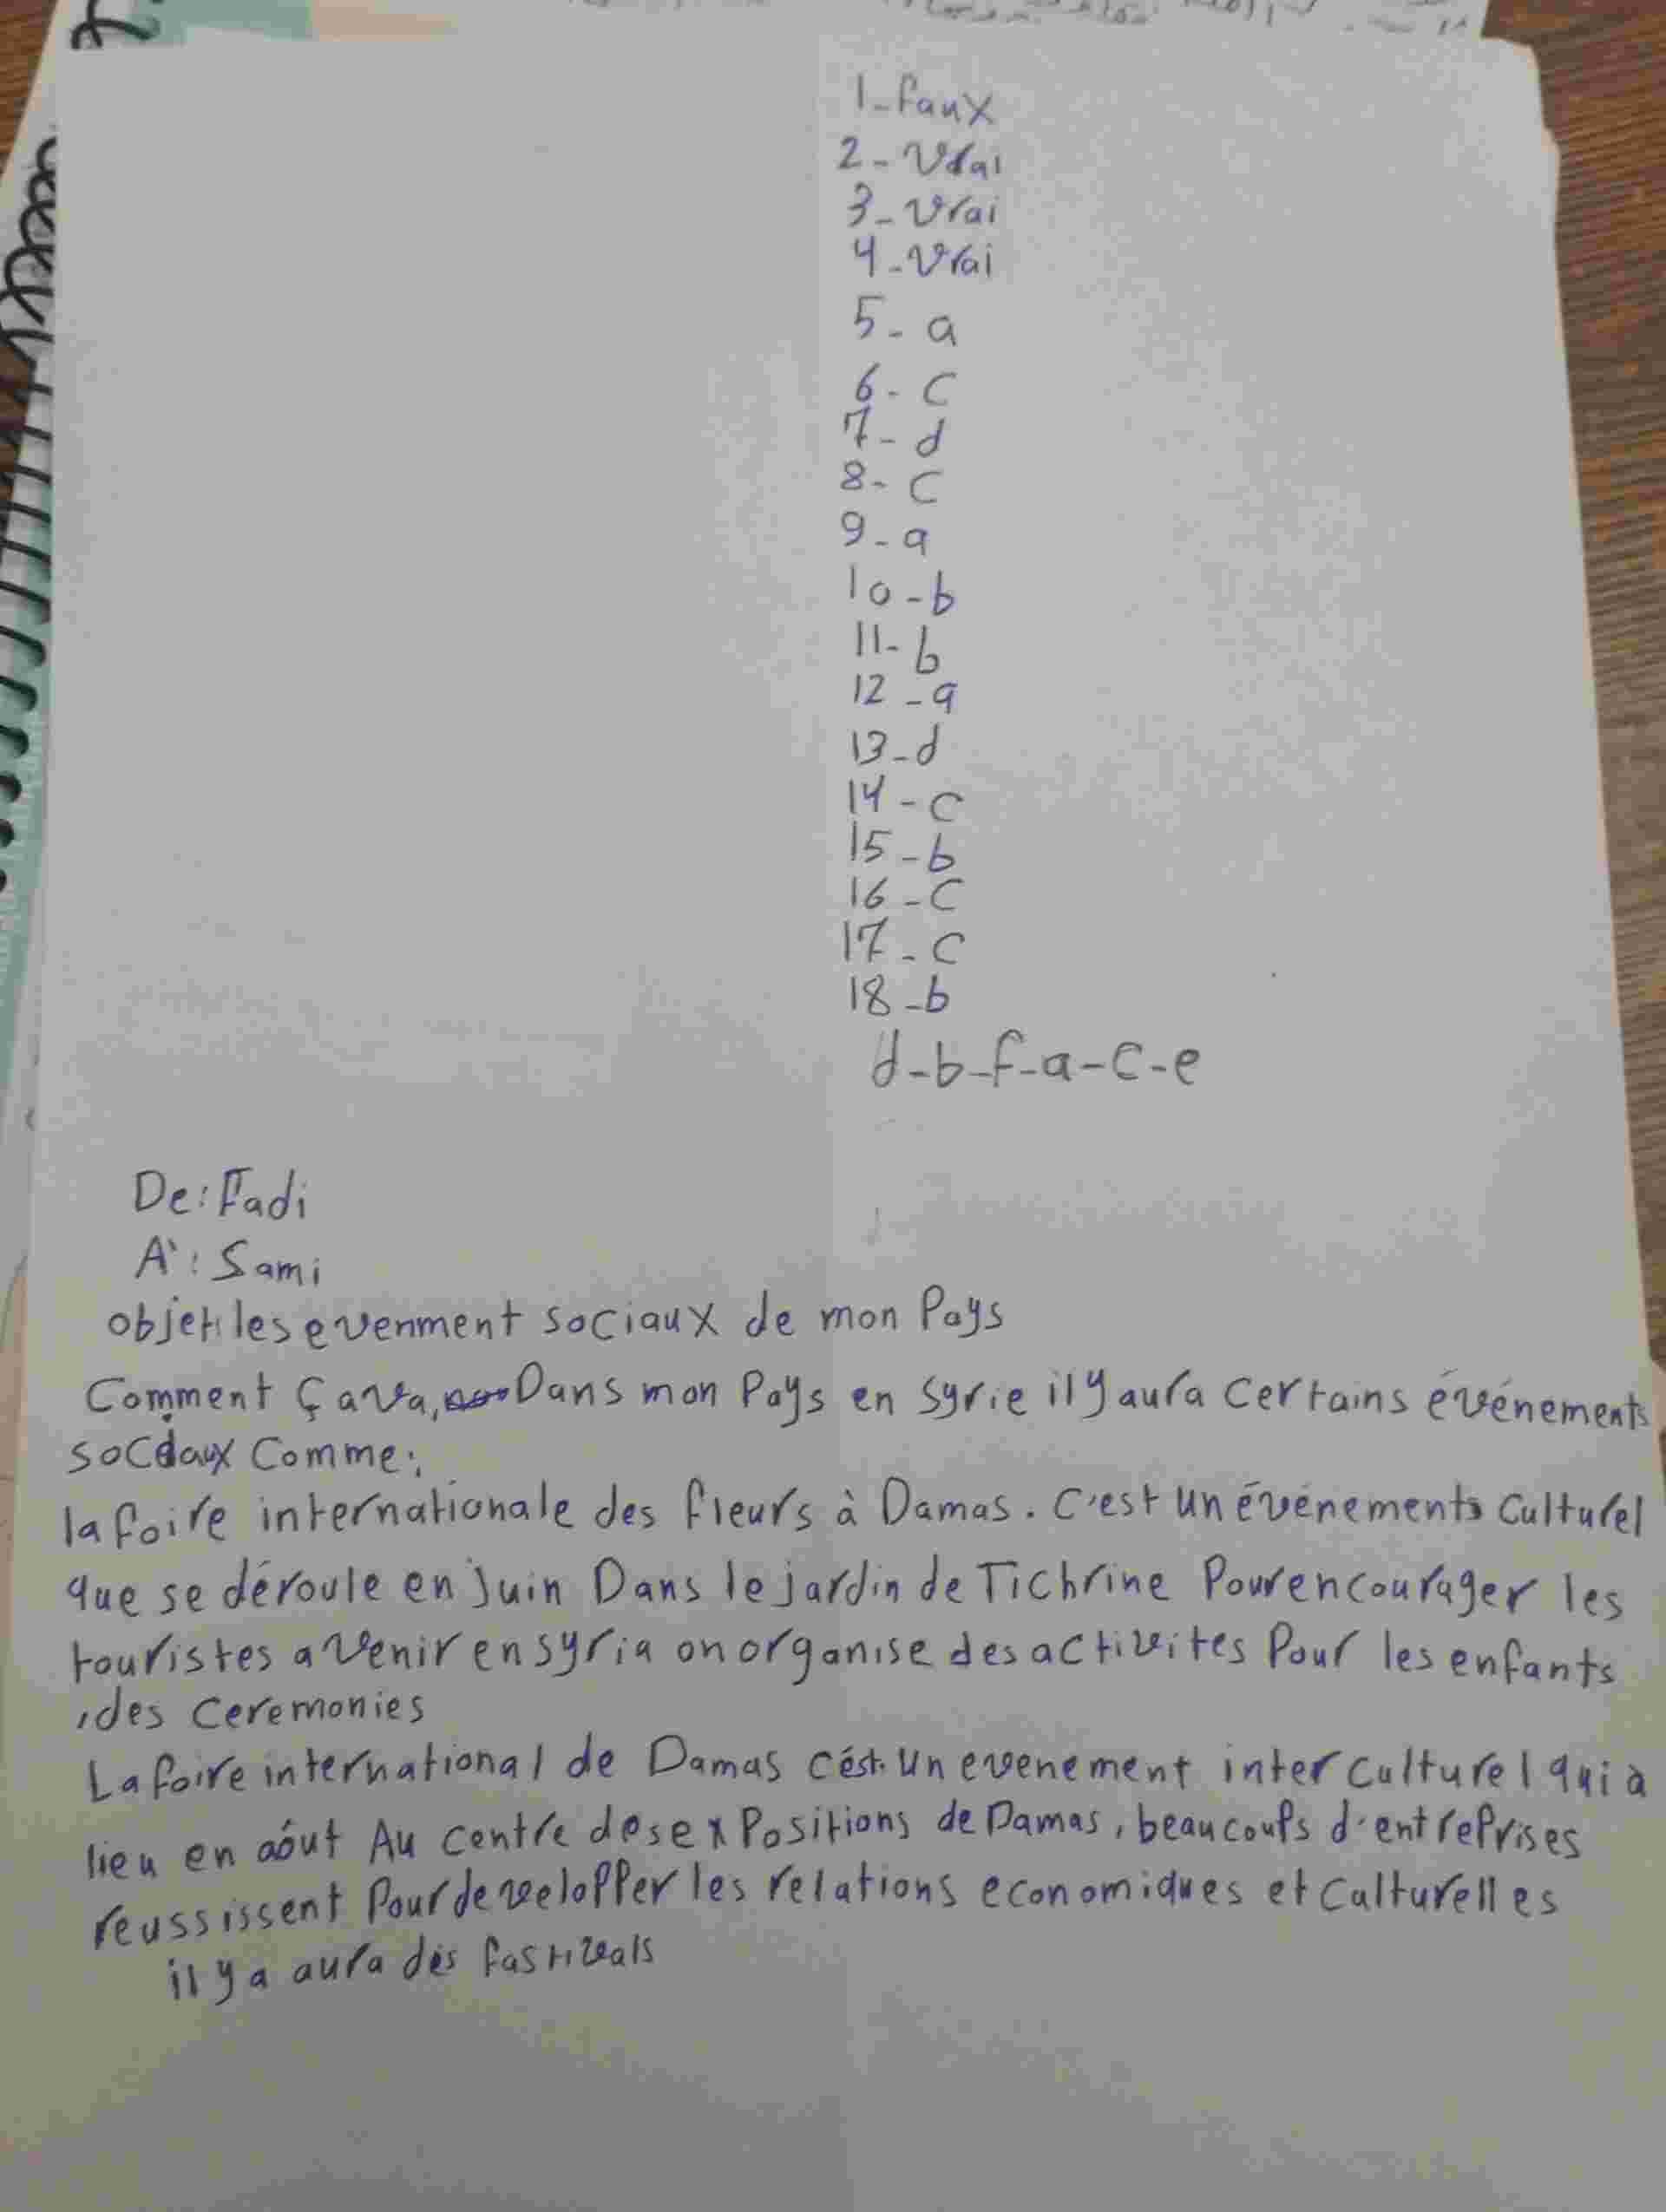 1-faux
2-Vrai
3-Vrai
4-Vrai
5-a
6-C
7-d
8-C
9-a
10-b
11-b
12-a
13-d
14-C
15-b
16-C
17-C
18-b
d-b-f-a-C-e
De: Fadi
À: Sami
objet: les evenment sociaux de mon Pays
Comment Ça va, Dans mon Pays en Syrie il y aura Certains événements
sociaux Comme:
la foire internationale des fleurs à Damas. C'est un événements Culturel
que se déroule en Juin Dans le jardin de Tichrine Pour encourager les
touristes a Venir en syria on organise des activites Pour les enfants
, des Ceremonies
La foire international de Damas c'ést un evenement inter Culturel qui à
lieu en aôut Au Centre des exPositions de Damas, beaucoups d'entrePrises
reussissent Pour develoPPer les relations economiques et Culturelles
il y a aura des fastivals